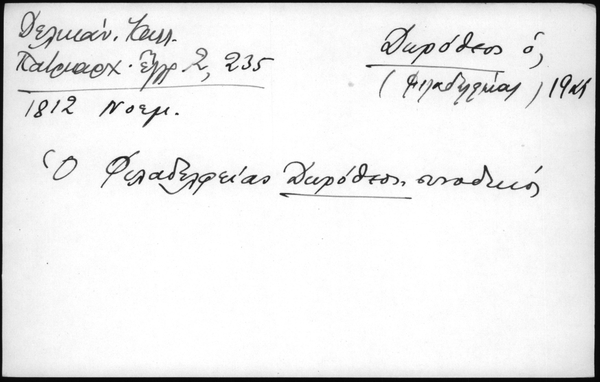 Δελικάν. Καλλ.
Πατριαρχ. Ἔγγρ. 2, 235
1812 Νοεμ.
Δωρόθεος ὁ,
(Φιλαδελφείας) 19
Ὁ Φιλαδελφείας Δωρόθεος συνοδικός